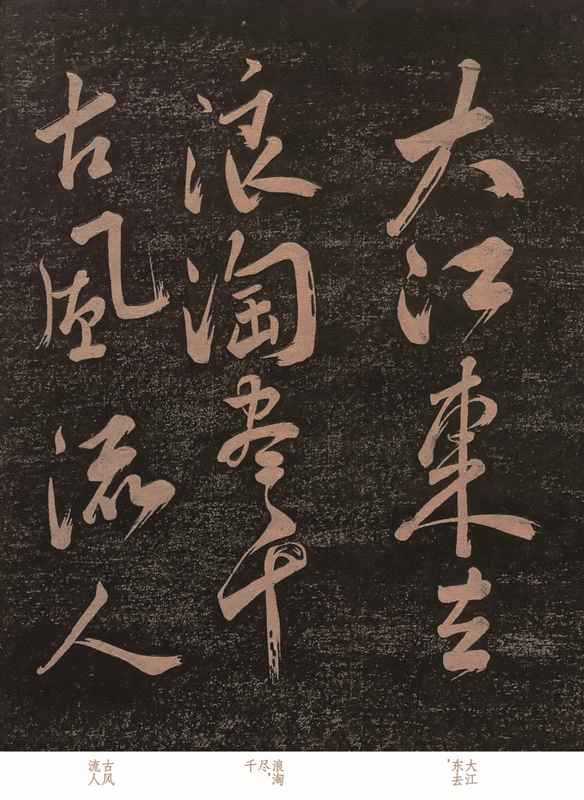 大江東去
浪淘盡千
古風流人
大江
东去，
浪淘
尽，
千
古风
流人